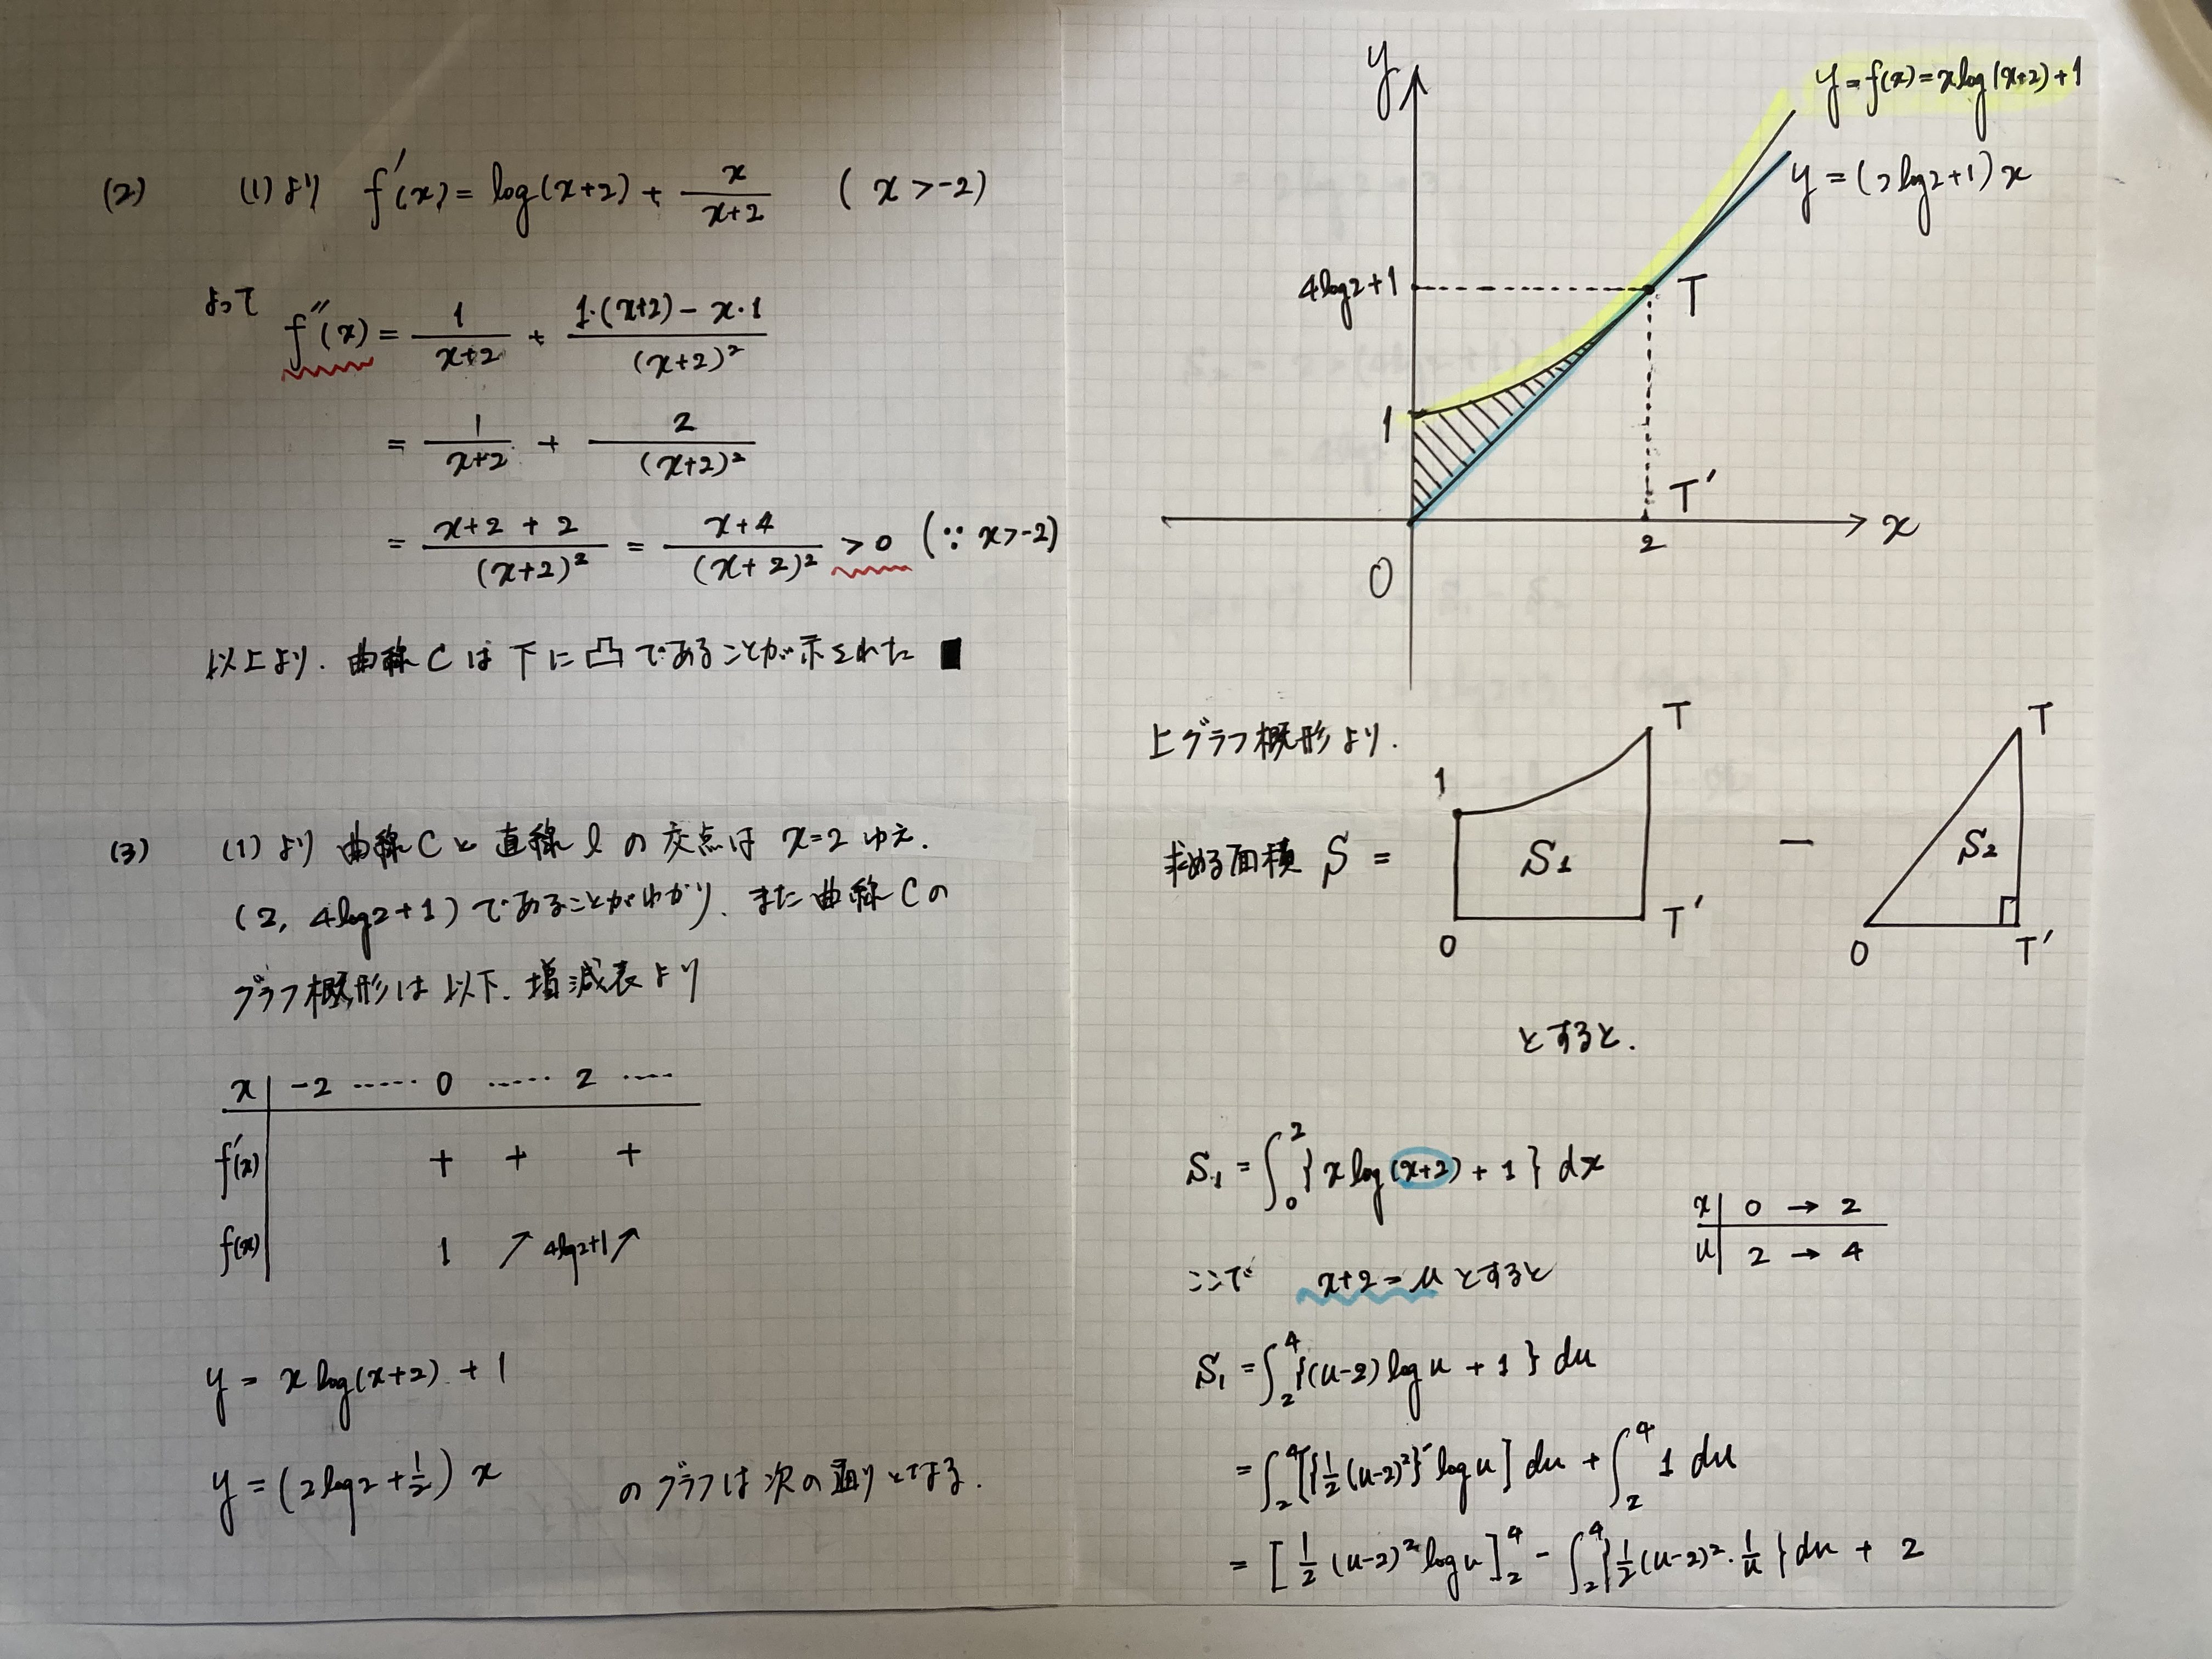 (2) (1)より f'(x) = log(x+2) + x/(x+2) ( x > -2)
よって f''(x) = 1/(x+2) + {1·(x+2) - x·1}/(x+2)²
= 1/(x+2) + 2/(x+2)²
= (x+2+2)/(x+2)² = (x+4)/(x+2)² > 0 (∵ x>-2)
以上より. 曲線 C は 下に凸であることが示された ■
(3) (1) より 曲線 C と 直線 l の 交点は x=2 ゆえ.
(2, 4log2+1) であることがわかり. また 曲線 C の
グラフ概形は 以下. 増減表より
x | -2 …… 0 …… 2 ……
f'(x) | + + +
f(x) | 1 ↗ 4log2+1 ↗
y = x log(x+2) + 1
y = (2log2 + 1/2) x のグラフは次の通りとなる.
y
y = f(x) = x log(x+2) + 1
y = (2log2+1) x
4log2+1
T
1
T'
x
2
O
上グラフ概形より.
T T
1
求める面積 S = S₁ - S₂
O T' O T'
とすると.
S₁ = ∫₀² { x log(x+2) + 1 } dx
x | 0 → 2
u | 2 → 4
ここで x+2 = u とすると
S₁ = ∫₂⁴ {(u-2) log u + 1 } du
= ∫₂⁴ [{1/2 (u-2)²}' log u] du + ∫₂⁴ 1 du
= [1/2 (u-2)² log u]₂⁴ - ∫₂⁴ {1/2 (u-2)² · 1/u} du + 2